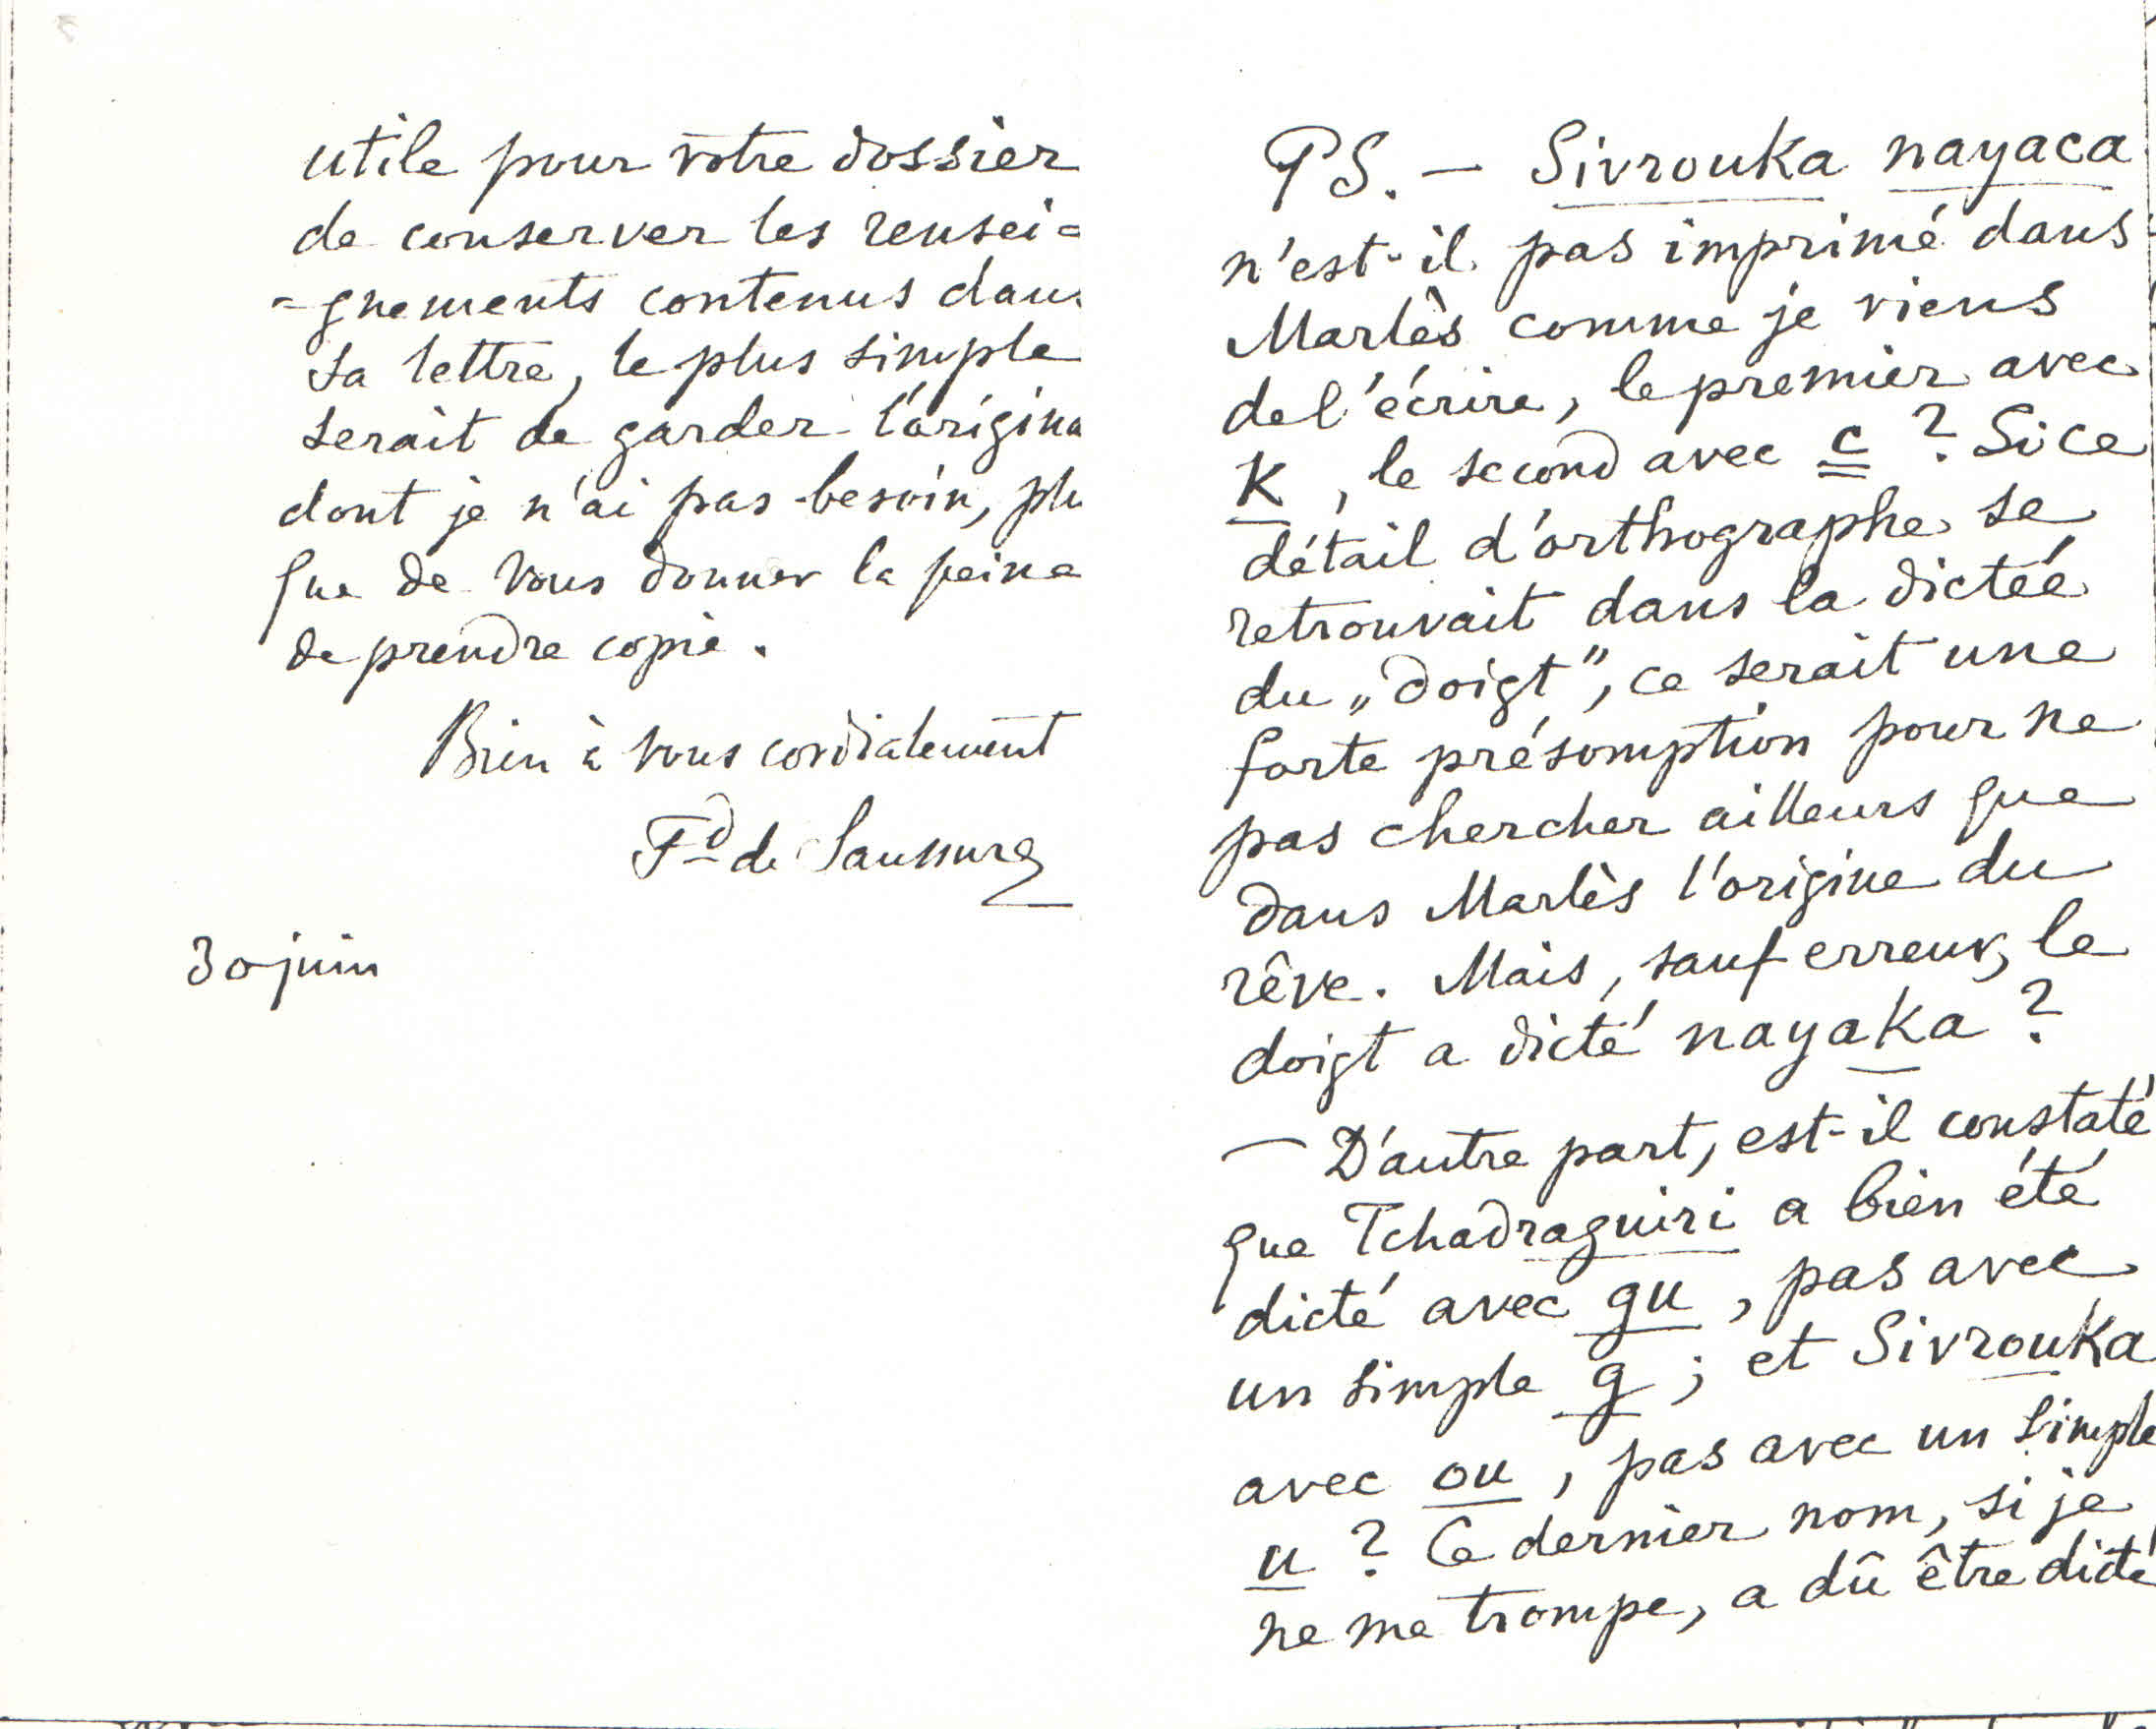 utile pour votre dossier
de conserver les rensei=
=gnements contenus dans
sa lettre, le plus simple
serait de garder l'origina
dont je n'ai pas besoin, plu
que de vous donner la peine
de prendre copie.
Bien à vous cordialement
Fd de Saussure
30 juin
PS. — Sivrouka nayaca
n'est-il pas imprimé dans
Marlès comme je viens
de l'écrire, le premier avec
k, le second avec c ? Si ce
détail d'orthographe se
retrouvait dans la dictée
du „doigt", ce serait une
forte présomption pour ne
pas chercher ailleurs que
dans Marlès l'origine du
rêve. Mais, sauf erreur, le
doigt a dicté nayaka ?
— D'autre part, est-il constaté
que Tchadraguiri a bien été
dicté avec gu, pas avec
un simple g ; et Sivrouka
avec ou, pas avec un simple
u ? Ce dernier nom, si je
ne me trompe, a dû être dicté